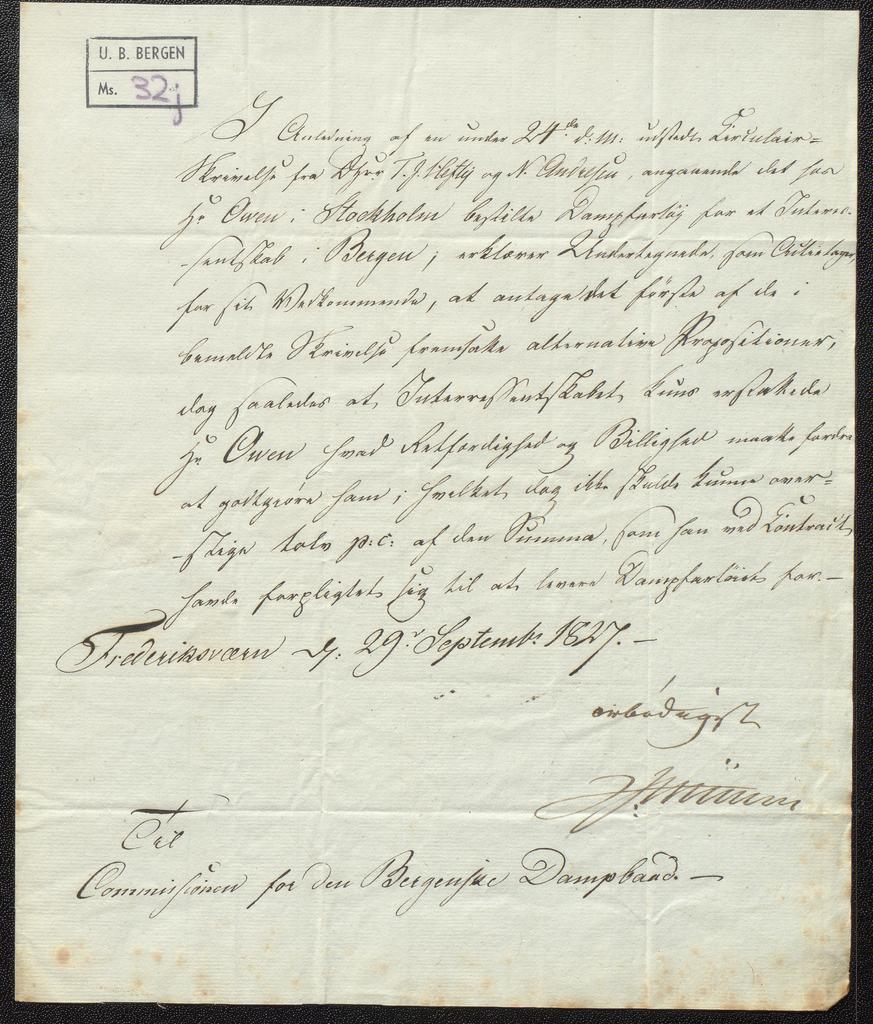 U. B. BERGEN
Ms. 32j
I Anledning af en under 24de d: M: udstedt Circulair=
Skrivelse fra DHrr T. J. Heftij og N. Andresen, angaaende det hos
Hr Owen i Stockholm bestilte Dampfartöÿ for et Interes-
-sentskab i Bergen; erklærer Undertegnede, som Actietager,
for sit Vedkommende, at antage det förste af de i
bemeldte Skrivelse fremsatte alternative Propositioner,
dog saaledes at Interressentskabet kuns erstattede
Hr Owen hvad Retfærdighed og Billighed maatte fordre
at godtgiöre ham; hvilket dog ikke skulde kunne over=
-stige tolv p:c: af den Summa, som han ved Contract
havde forpligtet sig til at levere Dampfartöiet for.—
Frederiksværn d: 29r Septembr 1827.—
ærbödigst
Til
Commissionen for den Bergenske Dampbaad.—